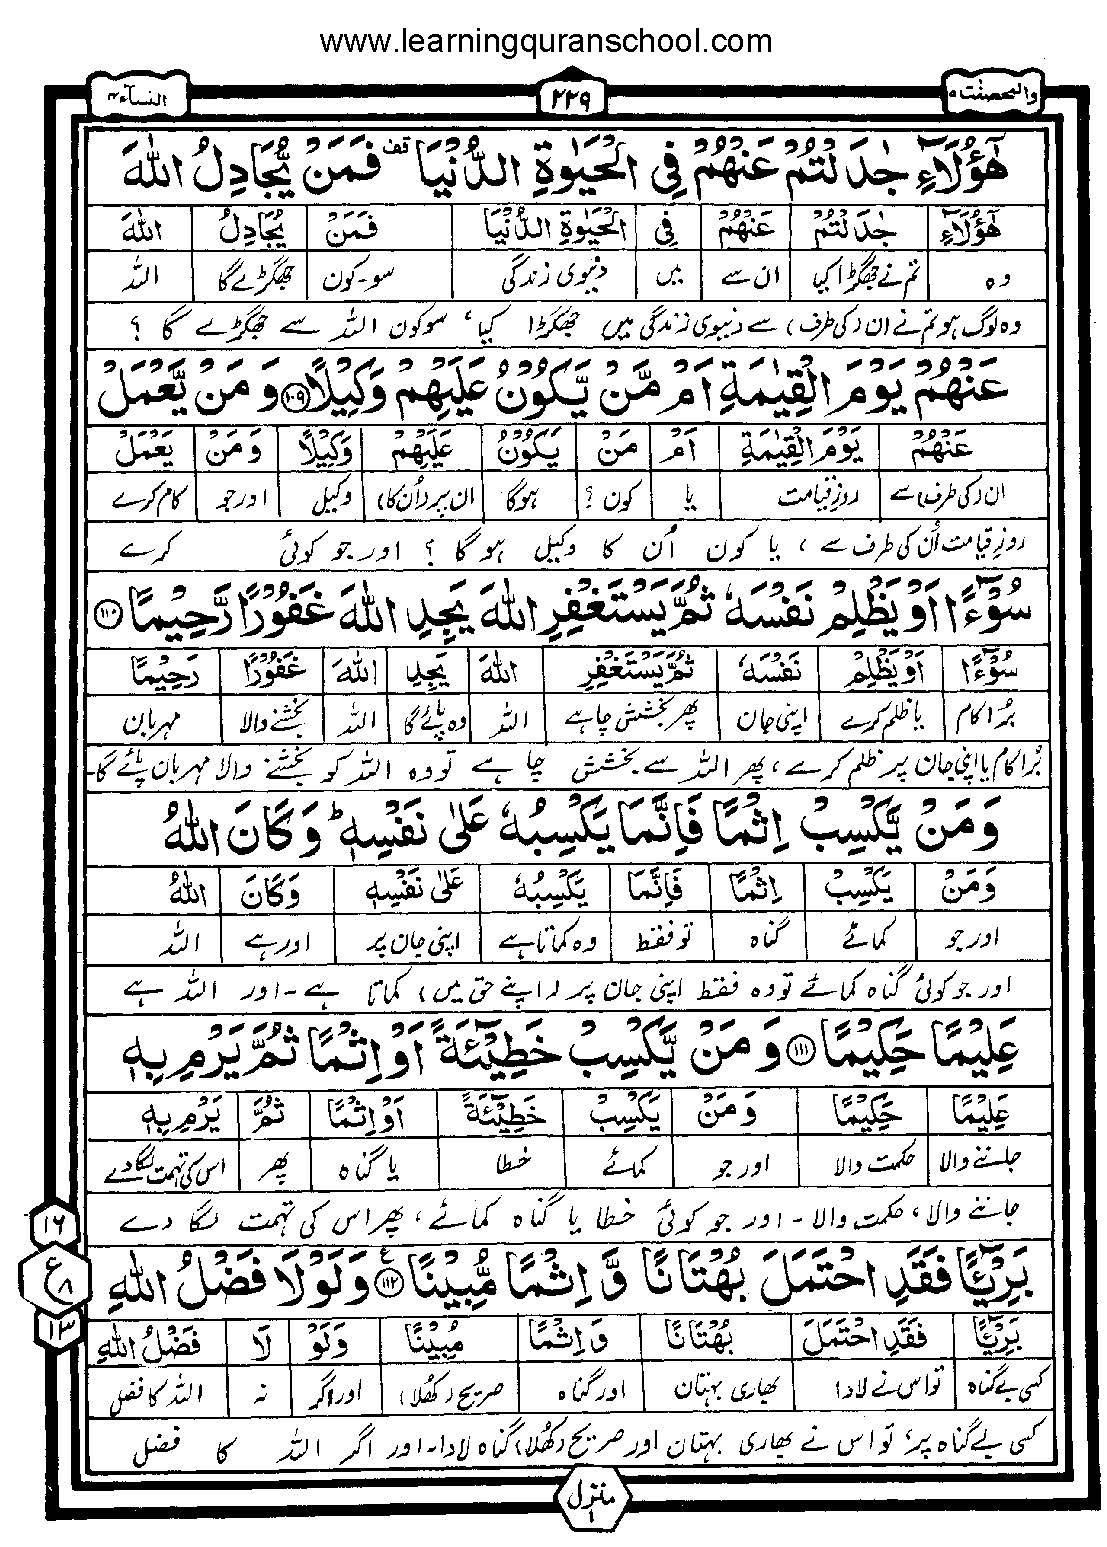 www.learningquranschool.com
والمحصنت ۵
۲۲۹
النسآء ۴
هٰۤؤُلَآءِ جٰدَلْتُمْ عَنْهُمْ فِی الْحَیٰوةِ الدُّنْیَا قف فَمَنْ یُّجَادِلُ اللهَ
هٰۤؤُلَآءِ جٰدَلْتُمْ عَنْهُمْ فِی الْحَیٰوةِ الدُّنْیَا فَمَنْ یُجَادِلُ اللهَ
وہ تم نے جھگڑا کیا ان سے میں دنیوی زندگی سو۔کون جھگڑے گا اللہ
وہ لوگ ہو تم نے ان (کی طرف) سے دنیوی زندگی میں جھگڑا کیا، سو کون اللہ سے جھگڑے گا ؟
عَنْهُمْ یَوْمَ الْقِیٰمَةِ اَمْ مَّنْ یَّكُوْنُ عَلَیْهِمْ وَكِیْلًا ۱۰۹ وَ مَنْ یَّعْمَلْ
عَنْهُمْ یَوْمَ الْقِیٰمَةِ اَمْ مَنْ یَكُوْنُ عَلَیْهِمْ وَكِیْلًا وَ مَنْ یَعْمَلْ
ان (کی طرف) سے روزِ قیامت یا کون ؟ ہوگا ان پر (اُن کا) وکیل اور جو کام کرے
روزِ قیامت اُن کی طرف سے ، یا کون اُن کا وکیل ہو گا ؟ اور جو کوئی کرے
سُوْٓءًا اَوْ یَظْلِمْ نَفْسَهٗ ثُمَّ یَسْتَغْفِرِ اللهَ یَجِدِ اللهَ غَفُوْرًا رَّحِیْمًا ۱۱۰
سُوْٓءًا اَوْ یَظْلِمْ نَفْسَهٗ ثُمَّ یَسْتَغْفِرِ اللهَ یَجِدِ اللهَ غَفُوْرًا رَحِیْمًا
بُرا کام یا ظلم کرے اپنی جان پھر بخشش چاہے اللہ وہ پائے گا اللہ بخشنے والا مہربان
بُرا کام یا اپنی جان پر ظلم کرے ، پھر اللہ سے بخشش چاہے تو وہ اللہ کو بخشنے والا مہربان پائے گا۔
وَ مَنْ یَّكْسِبْ اِثْمًا فَاِنَّمَا یَكْسِبُهٗ عَلٰى نَفْسِهٖ ؕ وَ كَانَ اللهُ
وَ مَنْ یَكْسِبْ اِثْمًا فَاِنَّمَا یَكْسِبُهٗ عَلٰى نَفْسِهٖ وَ كَانَ اللهُ
اور جو کمائے گناہ تو فقط وہ کماتا ہے اپنی جان پر اور ہے اللہ
اور جو کوئی گناہ کمائے تو وہ فقط اپنی جان پر (اپنے حق میں) کماتا ہے۔ اور اللہ ہے
عَلِیْمًا حَكِیْمًا ۱۱۱ وَ مَنْ یَّكْسِبْ خَطِیْٓئَةً اَوْ اِثْمًا ثُمَّ یَرْمِ بِهٖ
عَلِیْمًا حَكِیْمًا وَ مَنْ یَكْسِبْ خَطِیْٓئَةً اَوْ اِثْمًا ثُمَّ یَرْمِ بِهٖ
جاننے والا حکمت والا اور جو کمائے خطا یا گناہ پھر اس کی تہمت لگا دے
جاننے والا ، حکمت والا ۔ اور جو کوئی خطا یا گناہ کمائے ، پھر اس کی تہمت لگا دے
۱۶
ع
۸
۱۳
بَرِیْٓئًا فَقَدِ احْتَمَلَ بُهْتَانًا وَّ اِثْمًا مُّبِیْنًا ع ۱۱۲ وَ لَوْلَا فَضْلُ اللهِ
بَرِیْٓئًا فَقَدِ احْتَمَلَ بُهْتَانًا وَ اِثْمًا مُبِیْنًا وَ لَوْ لَا فَضْلُ اللهِ
کسی بے گناہ تو اس نے لادا بھاری بہتان اور گناہ صریح (کھلا) اور اگر نہ اللہ کا فضل
کسی بے گناہ پر، تو اس نے بھاری بہتان اور صریح (کھلا) گناہ لادا۔ اور اگر اللہ کا فضل
منزل ۱